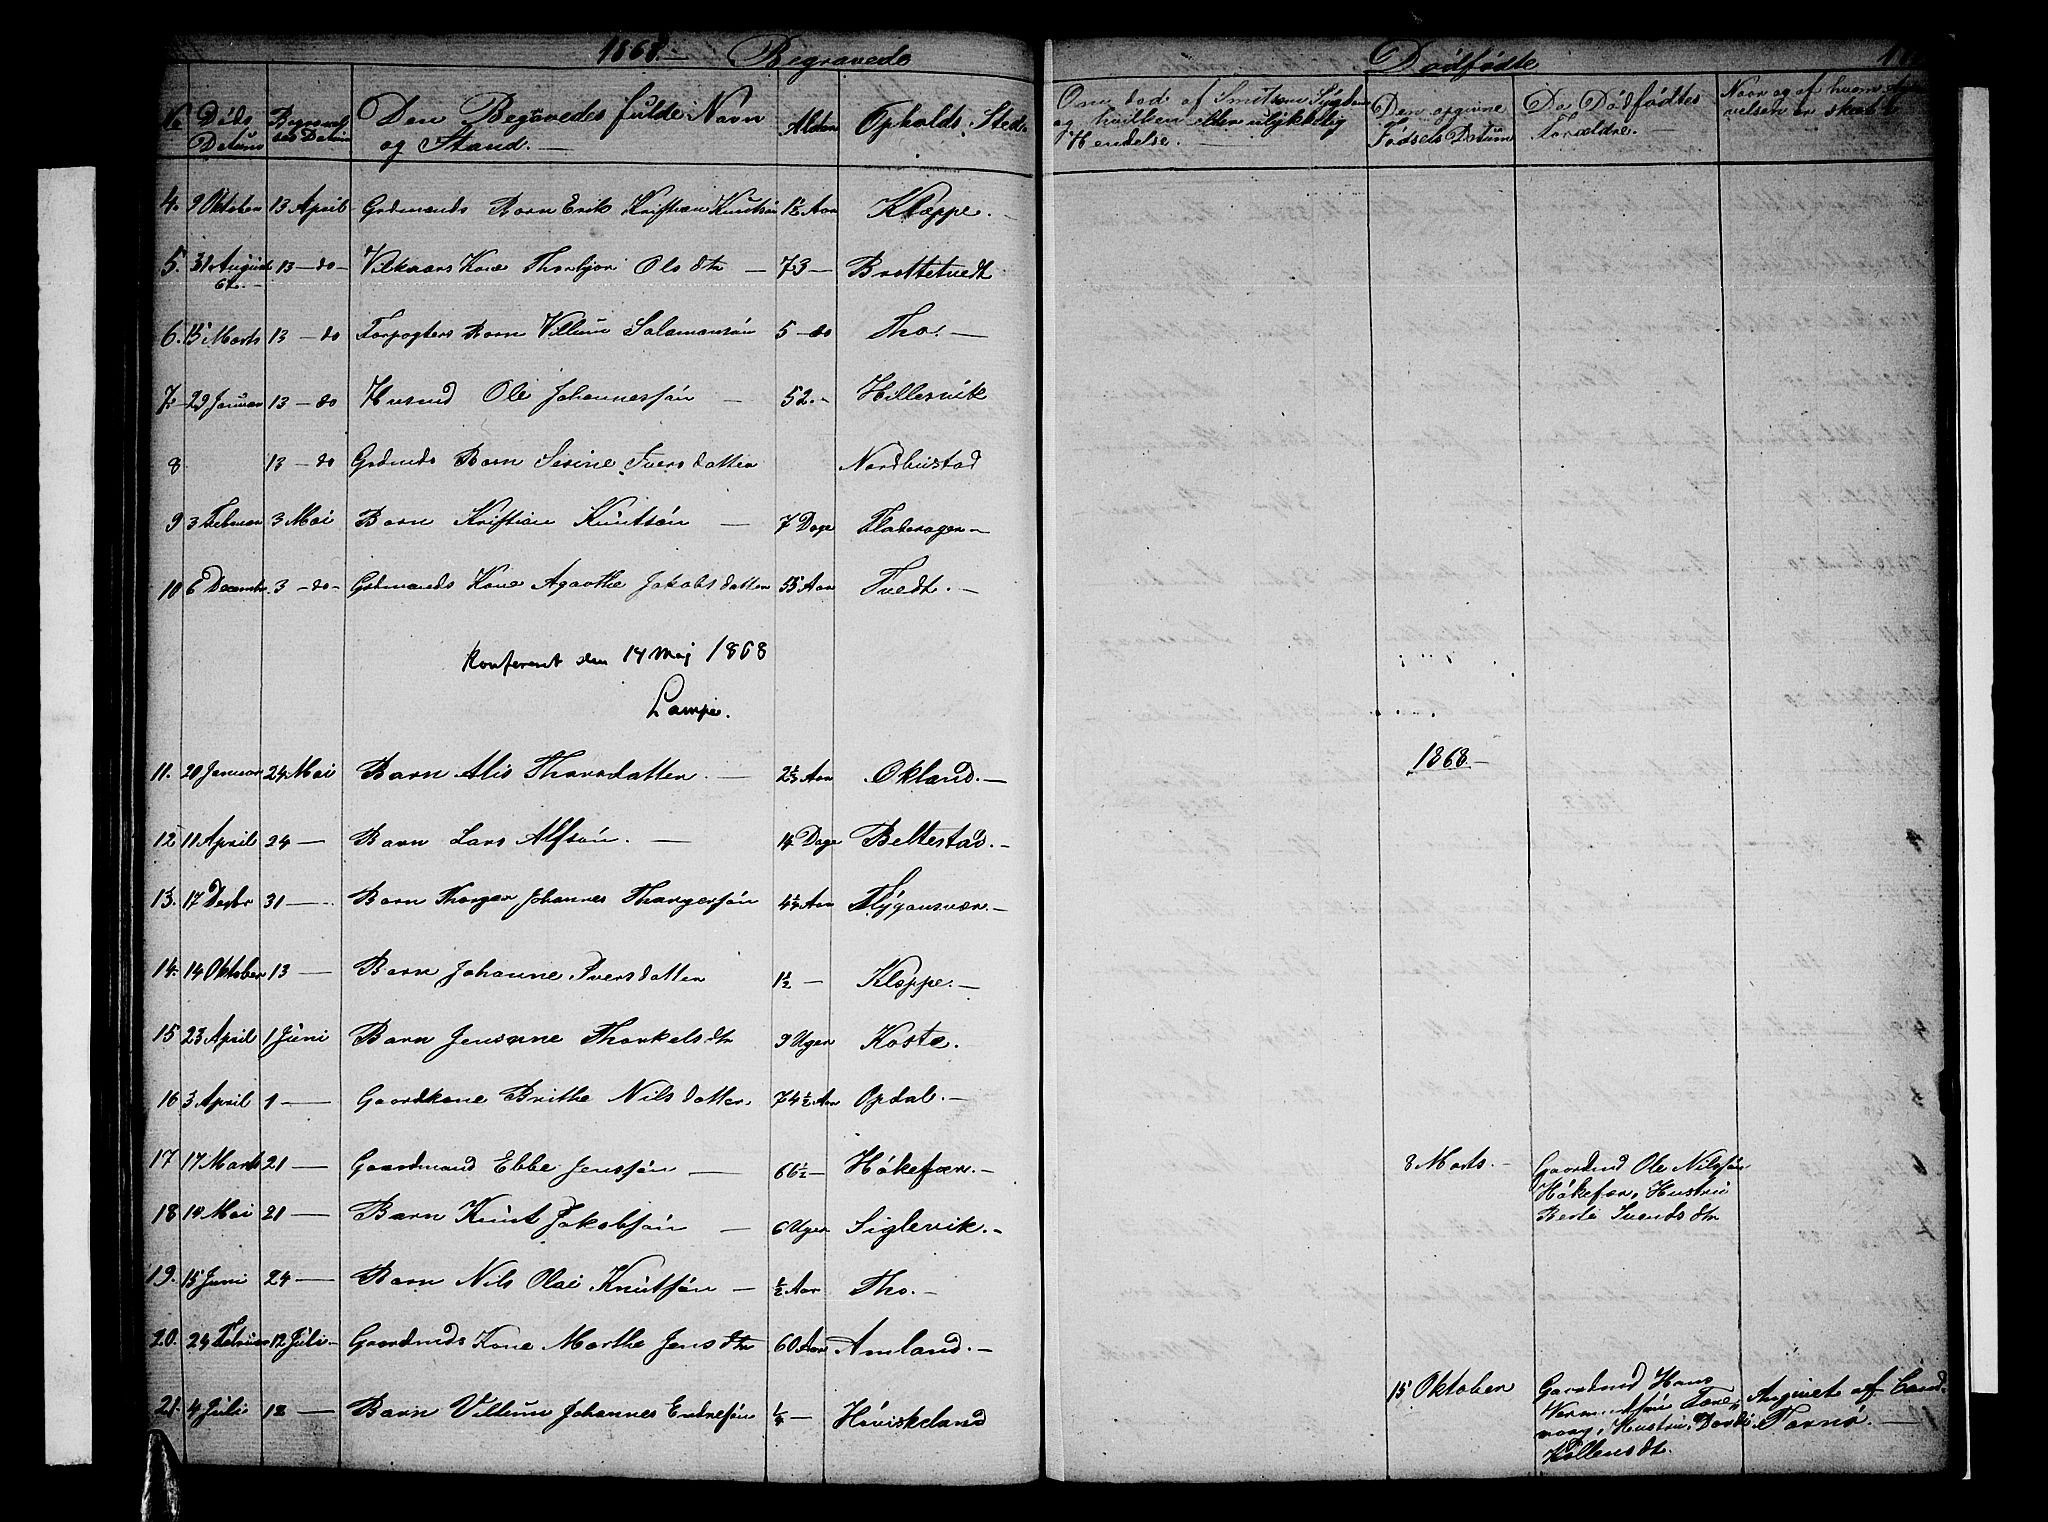 1868.— Begravede
Døds Datum
Begravelses Datum
Den Begravedes fulde Navn og Stand.—
Alder
Opholds Sted.
4. 9 Oktober 13 April Grdmands Barn Erik Kristian Knutsøn 1½ Aar Kleppe.—
5. 31 August 67.— 13 —do— Vilkaars Kone Thorbjør Olsdtr — 73 — Brottetvedt
6. 15 Marts 13 —do Forpagters Barn Villum Salamonsøn 5 —do Tho.—
7. 29 Januar 13 —do Husmd Ole Johannessøn — 52.— Hillesvik
8 13 —do Grdmds Barn Sirine Iversdatter Nordhustad
9 3 Februar 3 Mai Barn Kristian Knutsøn — 7 Dage Fladerager—
10 6 Decembr. 3 —do— Grdmands Kone Agaathe Jakobsdatter 55 Aar Tvedt.—
Konfereret den 14 Maj 1868
Lampe.
11. 20 Januar 24 Mai Barn Alis Thorsdatter.— 2½ Aar Økland.—
12 11 April 24 — Barn Lars Alfsøn.— 14 Dage Beltestad.—
13. 17 Decbr 31 — Barn Thorger Johannes Thorgersøn 4¼ Aar Flyganvær.—
14. 14 Oktober 13 — Barn Johanne Iversdatter 1½ — Kleppe.—
15 23 April 1 Juni Barn Jensine Thorkelsdtr 9 Uger Koste.
16 3 April 1 — Gaardkone Brithe Nilsdatter. 74½ Aar Opdal.—
17 17 Marts 21 — Gaardmand Ebbe Jenssøn — 66½ — Høkefær.—
18 10 Mai 21 — Barn Knut Jakobssøn — 6 Uger Siglevik.—
19. 15 Juni 24 — Barn Nils Olai Knutsøn — ½ Aar Tho.—
20. 24 Februar 12 Juli— Gaardmds Kone Marthe Jensdtr 60 Aar Amland.—
21. 4 Juli 12 — Barn Villum Johannes Endresøn ⅙ — Høviskeland
Dødfødte
Om død af Smitsom Sygdom
og hvilken eller ulykkelig
Hendelse.—
Den opgivne
Fødsels Datum
De Dødfødtes
Forældre.—
Naar og af hvem Angivelsen er skeet
1868.—
8 Marts.— Gaardmd Ole Nilssøn
Høkefær, Hustru
Berte Svendsdtr
15 Oktober Gaardmd Hans
Hustru, Dordi
Angivet af Land-
Tornø.—